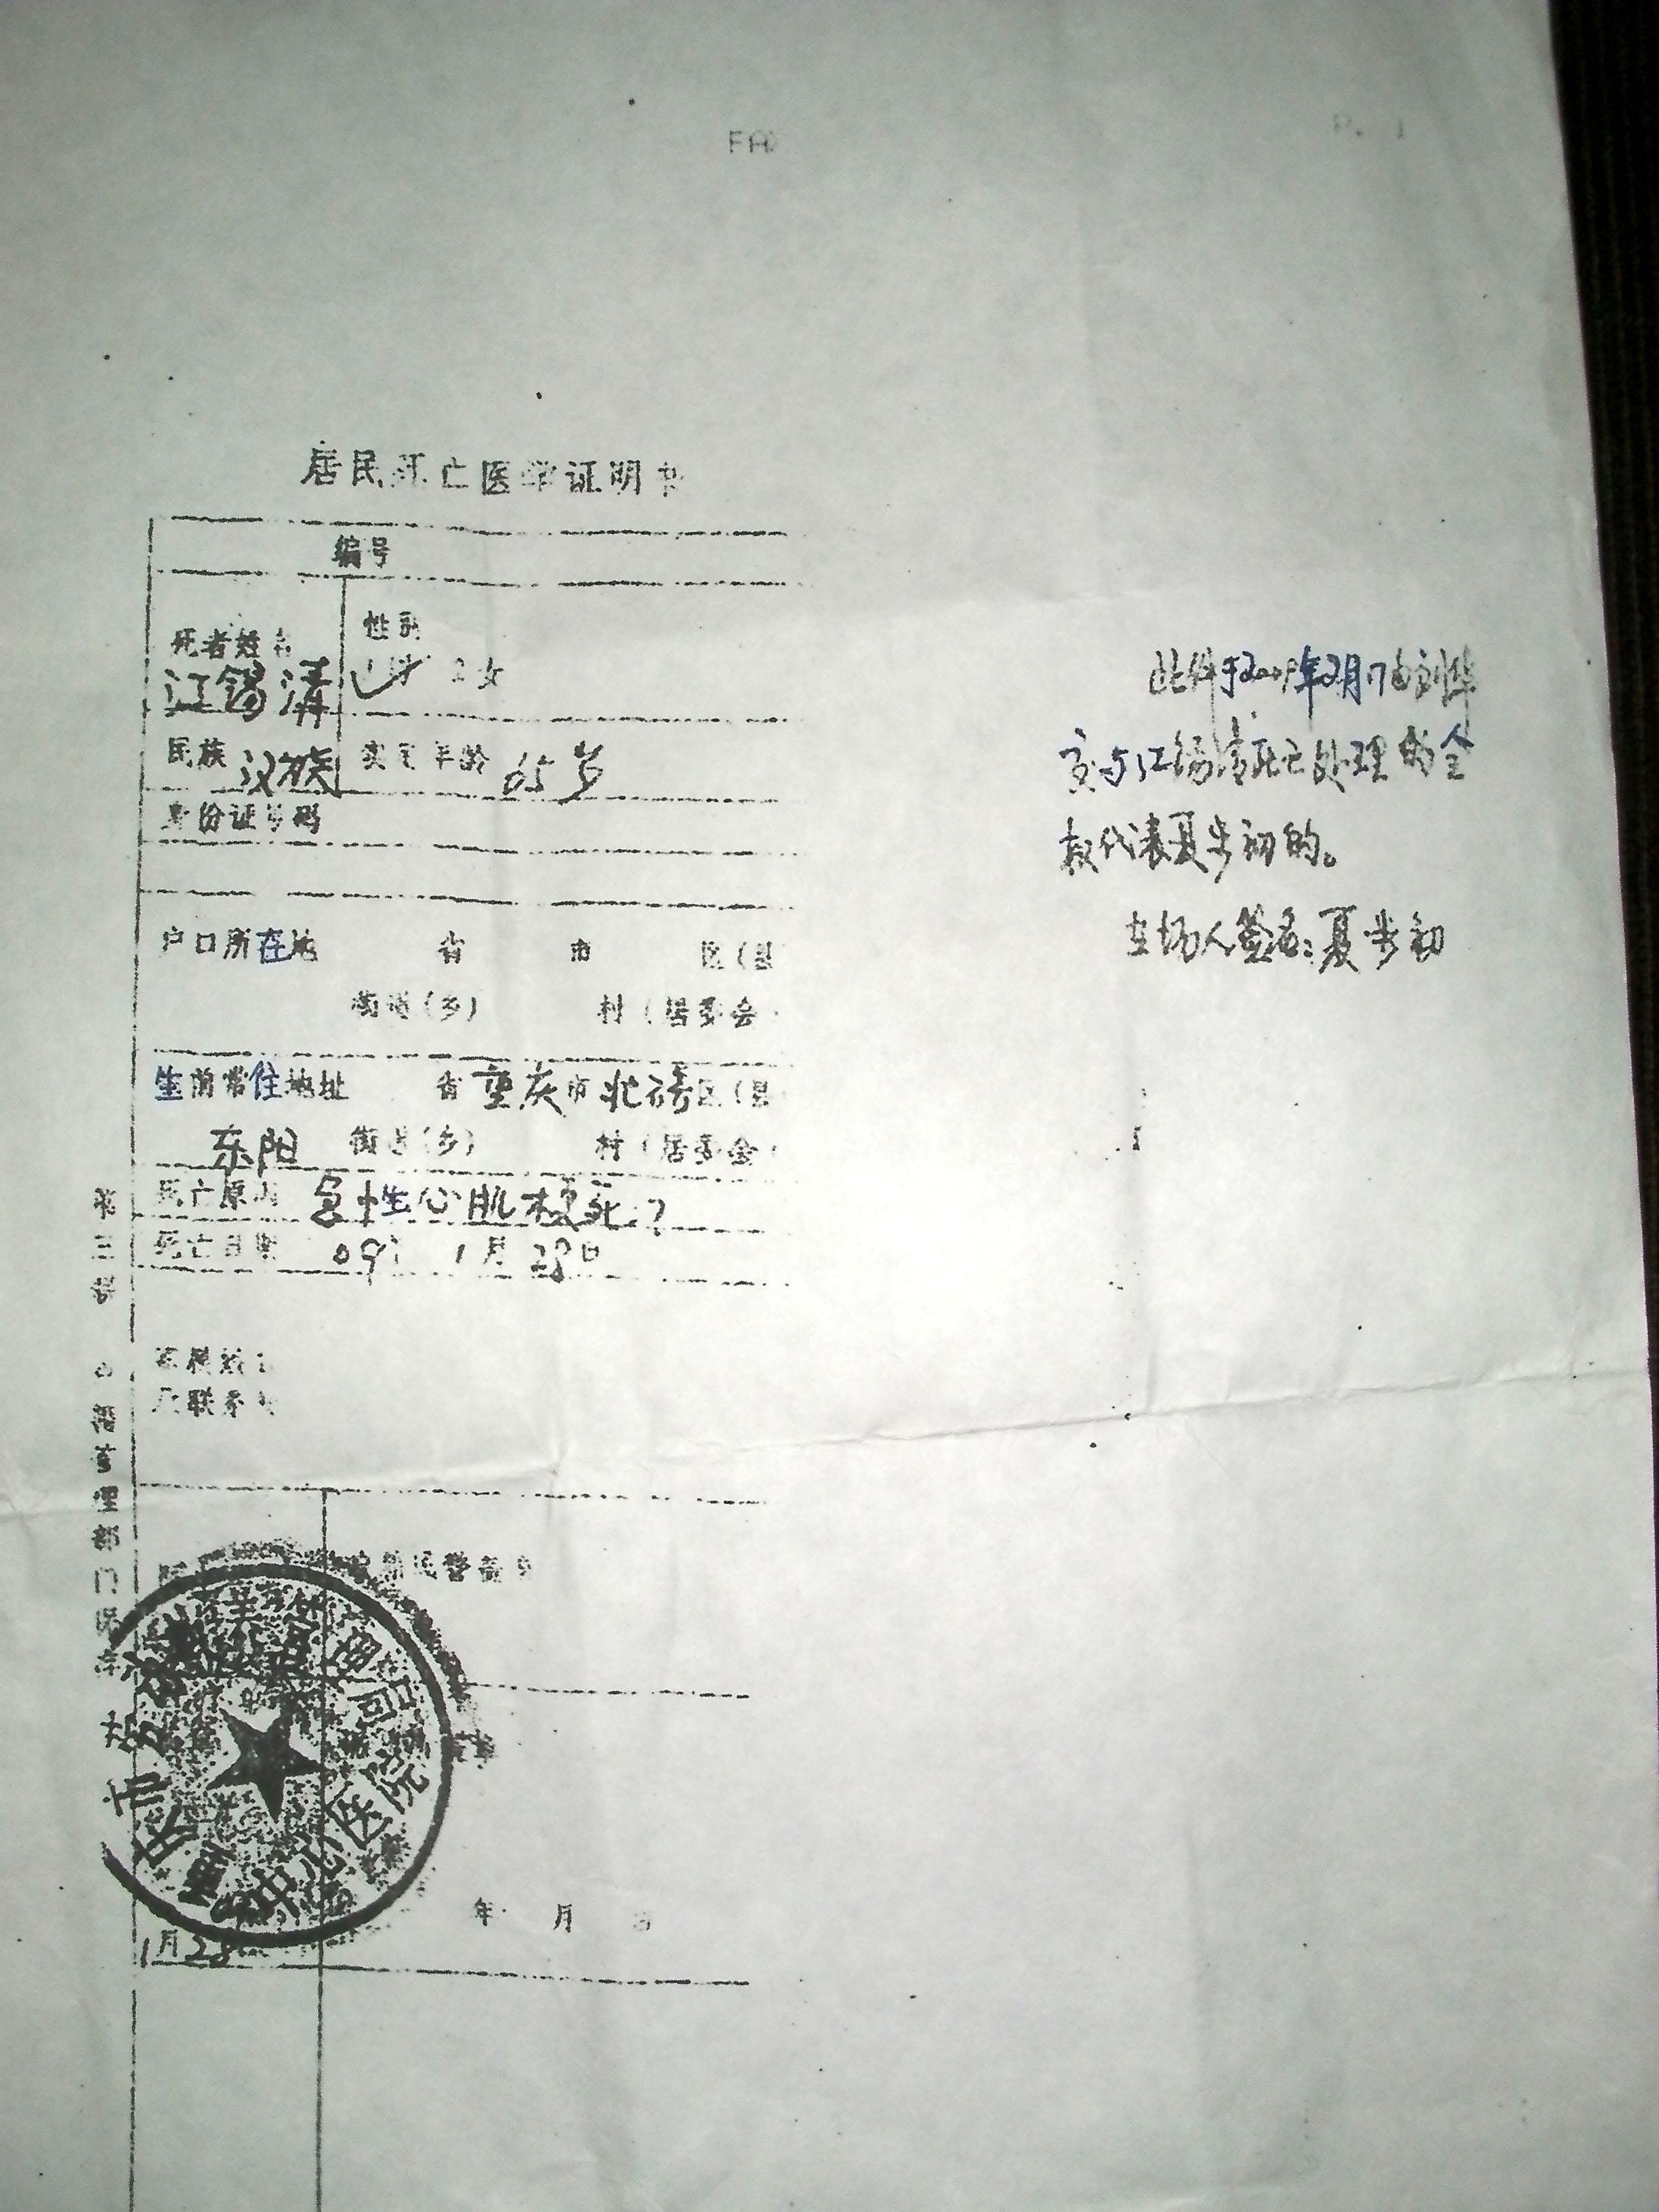 FAX
P. 1
居民死亡医学证明书
编号
死者姓名
江锡清
性别
1男 2女
民族 汉族 实足年龄 65岁
身份证号码
户口所在地 省 市 区(县
街道(乡) 村(居委会
生前常住地址 省 重庆市 北碚区(县
东阳 街道(乡) 村(居委会
死亡原因 急性心肌梗死?
死亡日期 09年 1月28日
家属姓名
及联系
第三联
管理部门保存
民警签
年 月 日
1月28
中心医院
此件于2009年2月17由刘华
交与江锡清死亡处理的全
权代表夏步初的。
在场人签名:夏步初